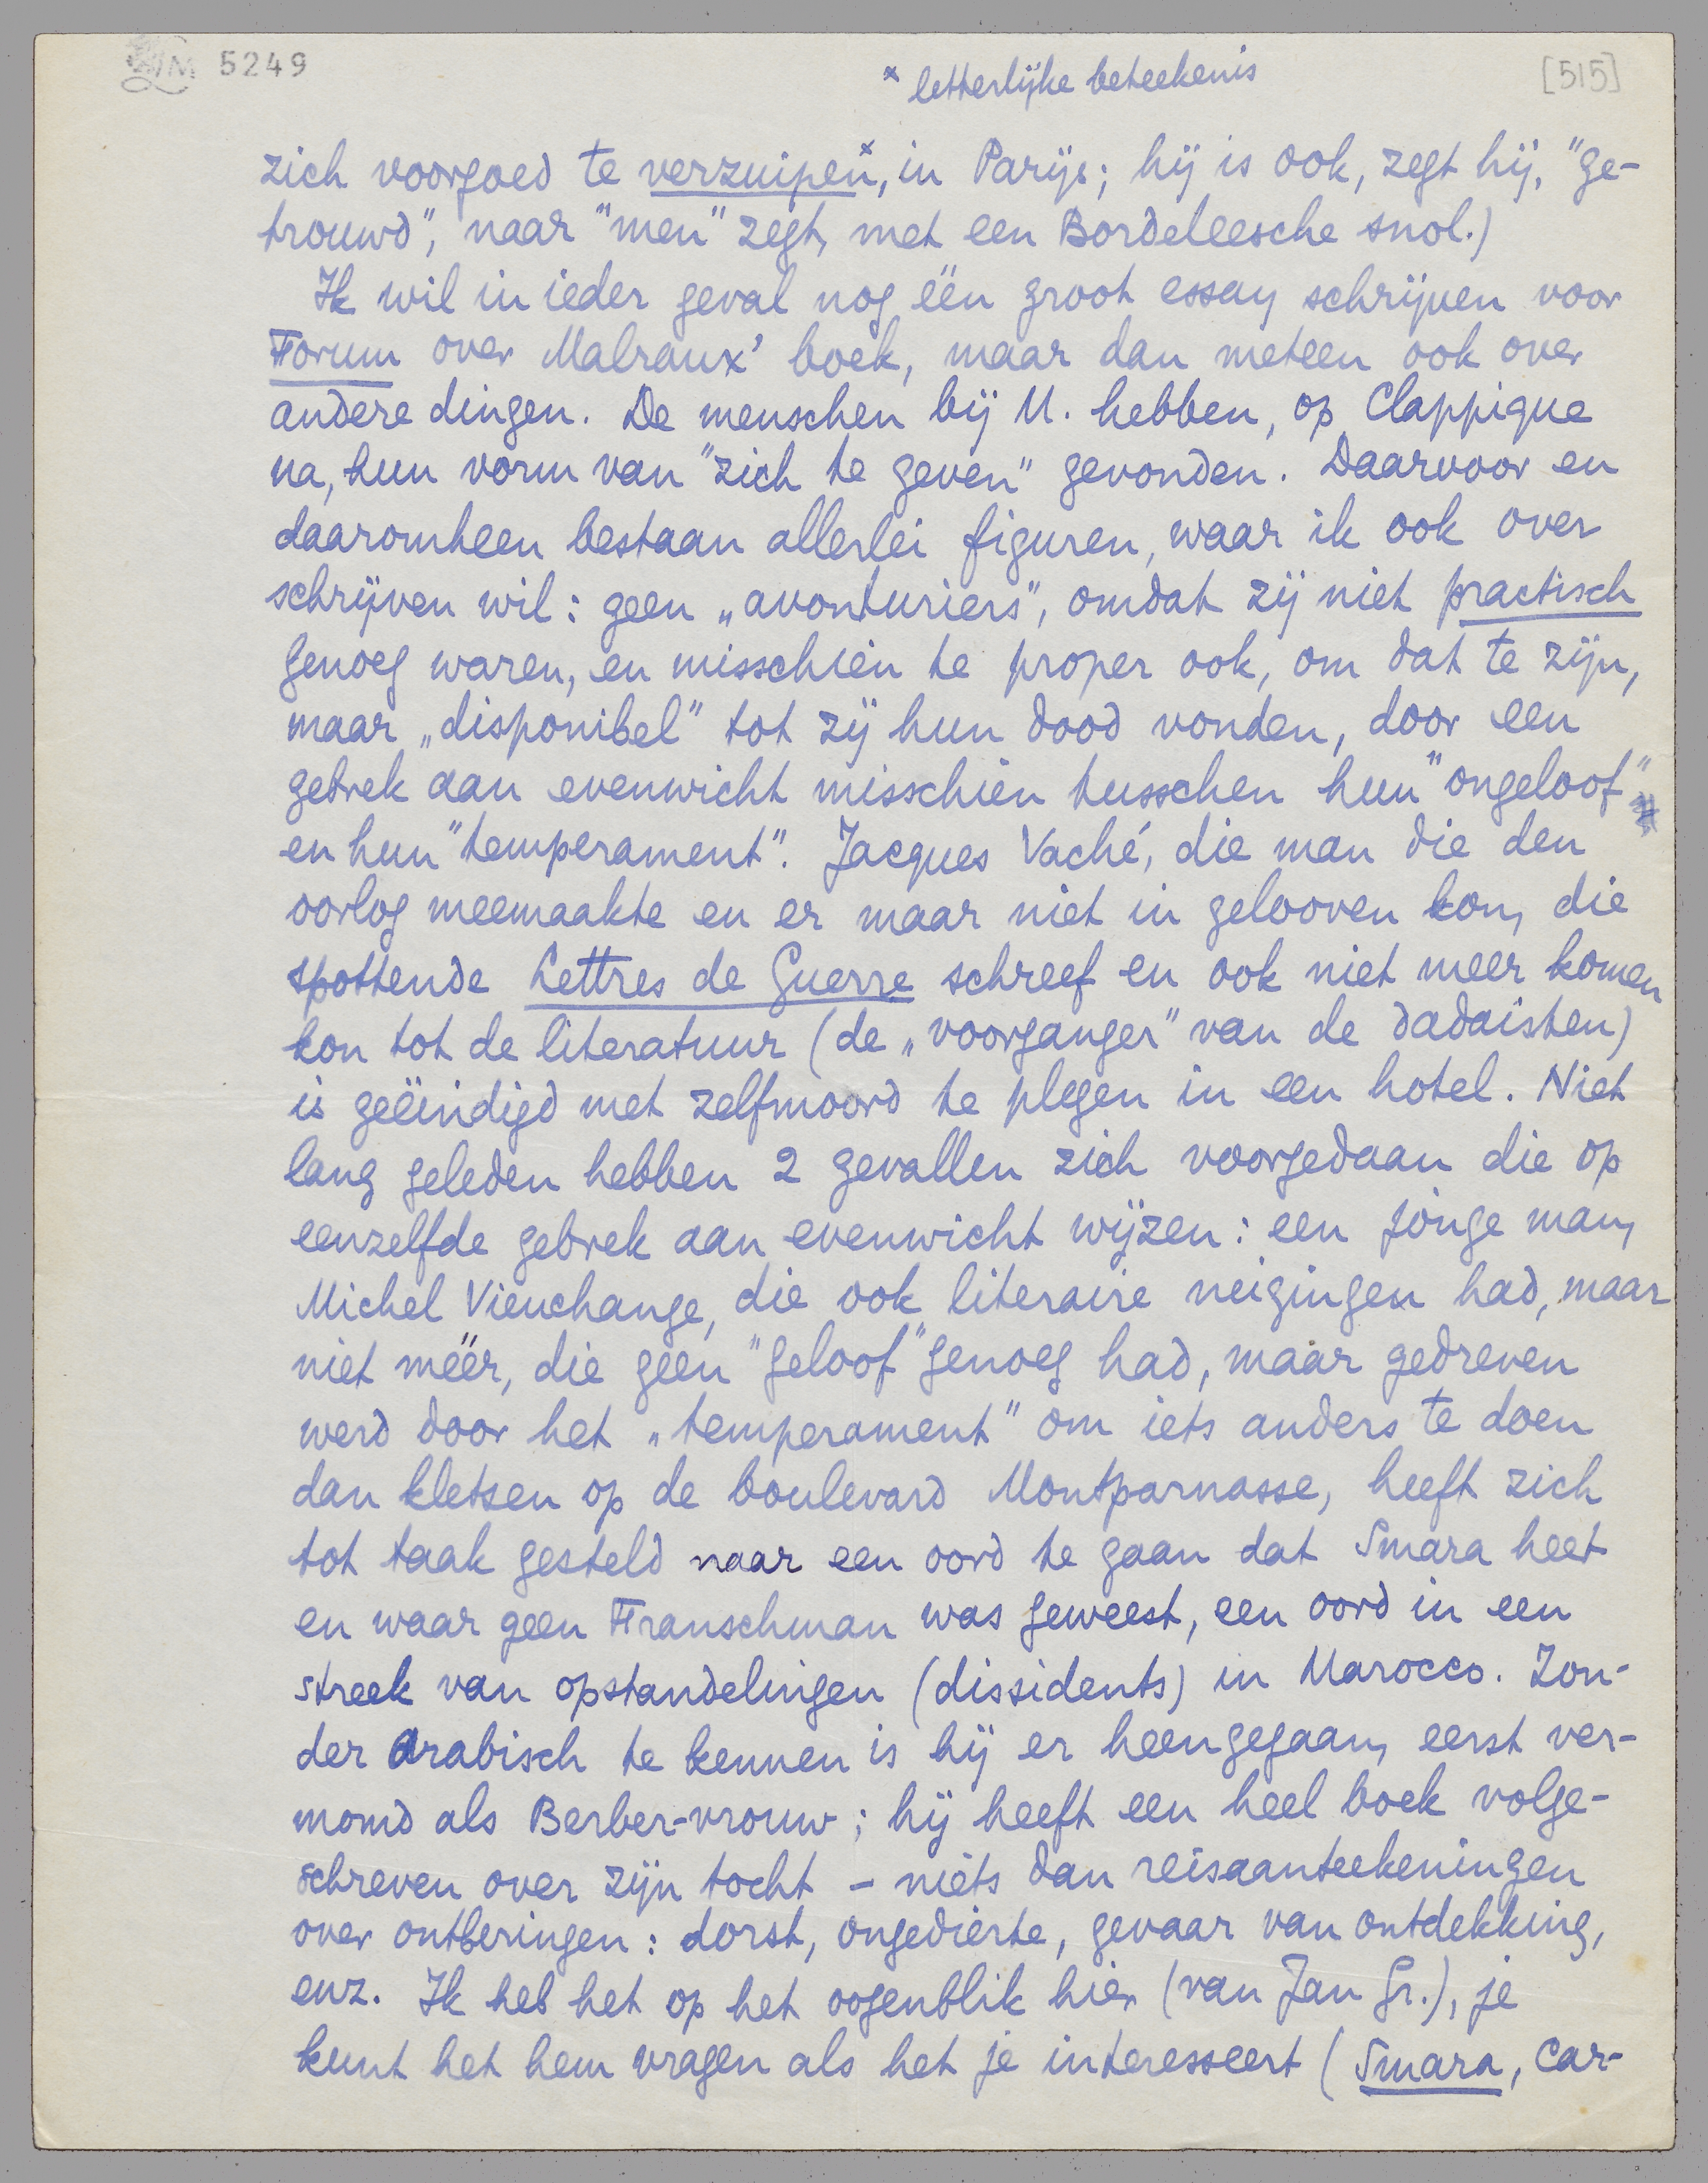 LM 5249
x letterlijke beteekenis
[515]
zich voorgoed te verzuipen x, in Parijs; hij is ook, zegt hij, "ge-
trouwd", naar "men" zegt, met een Bordeleesche snol.)
Ik wil in ieder geval nog één groot essay schrijven voor
Forum over Malraux' boek, maar dan meteen ook over
andere dingen. De menschen bij M. hebben, op Clappique
na, hun vorm van "zich te geven" gevonden. Daarvoor en
daaromheen bestaan allerlei figuren, waar ik ook over
schrijven wil: geen „avonturiers", omdat zij niet practisch
genoeg waren, en misschien te proper ook, om dat te zijn,
maar „disponibel" tot zij hun dood vonden, door een
gebrek aan evenwicht misschien tusschen hun "ongeloof"
en hun "temperament". Jacques Vaché, die man die den
oorlog meemaakte en er maar niet in gelooven kon, die
spottende Lettres de Guerre schreef en ook niet meer komen
kon tot de literatuur (de „voorganger" van de dadaïsten)
is geëindigd met zelfmoord te plegen in een hotel. Niet
lang geleden hebben 2 gevallen zich voorgedaan die op
eenzelfde gebrek aan evenwicht wijzen: een jonge man,
Michel Vieuchange, die ook literaire neigingen had, maar
niet méér, die geen "geloof" genoeg had, maar gedreven
werd door het „temperament" om iets anders te doen
dan kletsen op de boulevard Montparnasse, heeft zich
tot taak gesteld naar een oord te gaan dat Smara heet
en waar geen Franschman was geweest, een oord in een
streek van opstandelingen (dissidents) in Marocco. Zon-
der Arabisch te kennen is hij er heengegaan, eerst ver-
momd als Berber-vrouw; hij heeft een heel boek volge-
schreven over zijn tocht – niets dan reisaanteekeningen
over ontberingen: dorst, ongedierte, gevaar van ontdekking,
enz. Ik heb het op het oogenblik hier (van Jan Gr.), je
kunt het hem vragen als het je interesseert (Smara, Car-